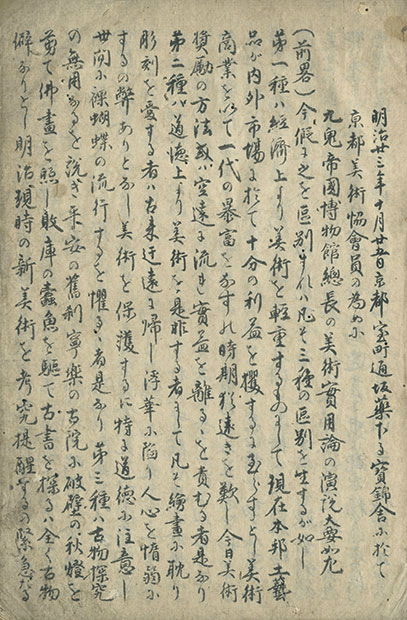 明治廿三年十月廿五日京都室町通坂薬下る寶錦舎ニ於て
京都美術協會員の為めニ
九鬼帝國博物館總長の美術實用論の演説大要如左
(前畧)今假ニ之を區別すれハ凡そ三種の區別を生するが如し
第一種ハ經濟上より美術を輕重するものニして現在本邦工藝
品が内外市場ニ於て十分の利益を攫するニ至らずとし美術
商業を以て一代の暴富を為すれ時期猶遠きを歎し今日美術
奨勵の方法或ハ空遠ニ流れ實益を離るゝを責むる者是なり
第二種ハ道徳上より美術を是非する者ニして凡そ繪畫ニ耽り
彫刻を愛する者ハ古来迂遠ニ帰し浮華ニ陥り人心を惰弱ニ
するの弊ありとなし美術を保護するニ特ニ道徳ニ注意し
世間ニ裸蝴蝶の流行すると懼るゝ者是なり 第三種ハ古物探究
の無用なるを説き平安の舊刹寧樂の古院ニ破壁の秋燈を
剪て佛畫を照し敗庫の蠹魚を驅て古書を探るハ全く古物
僻なりとし明治現時の新美術を考究提醒するの緊急なる